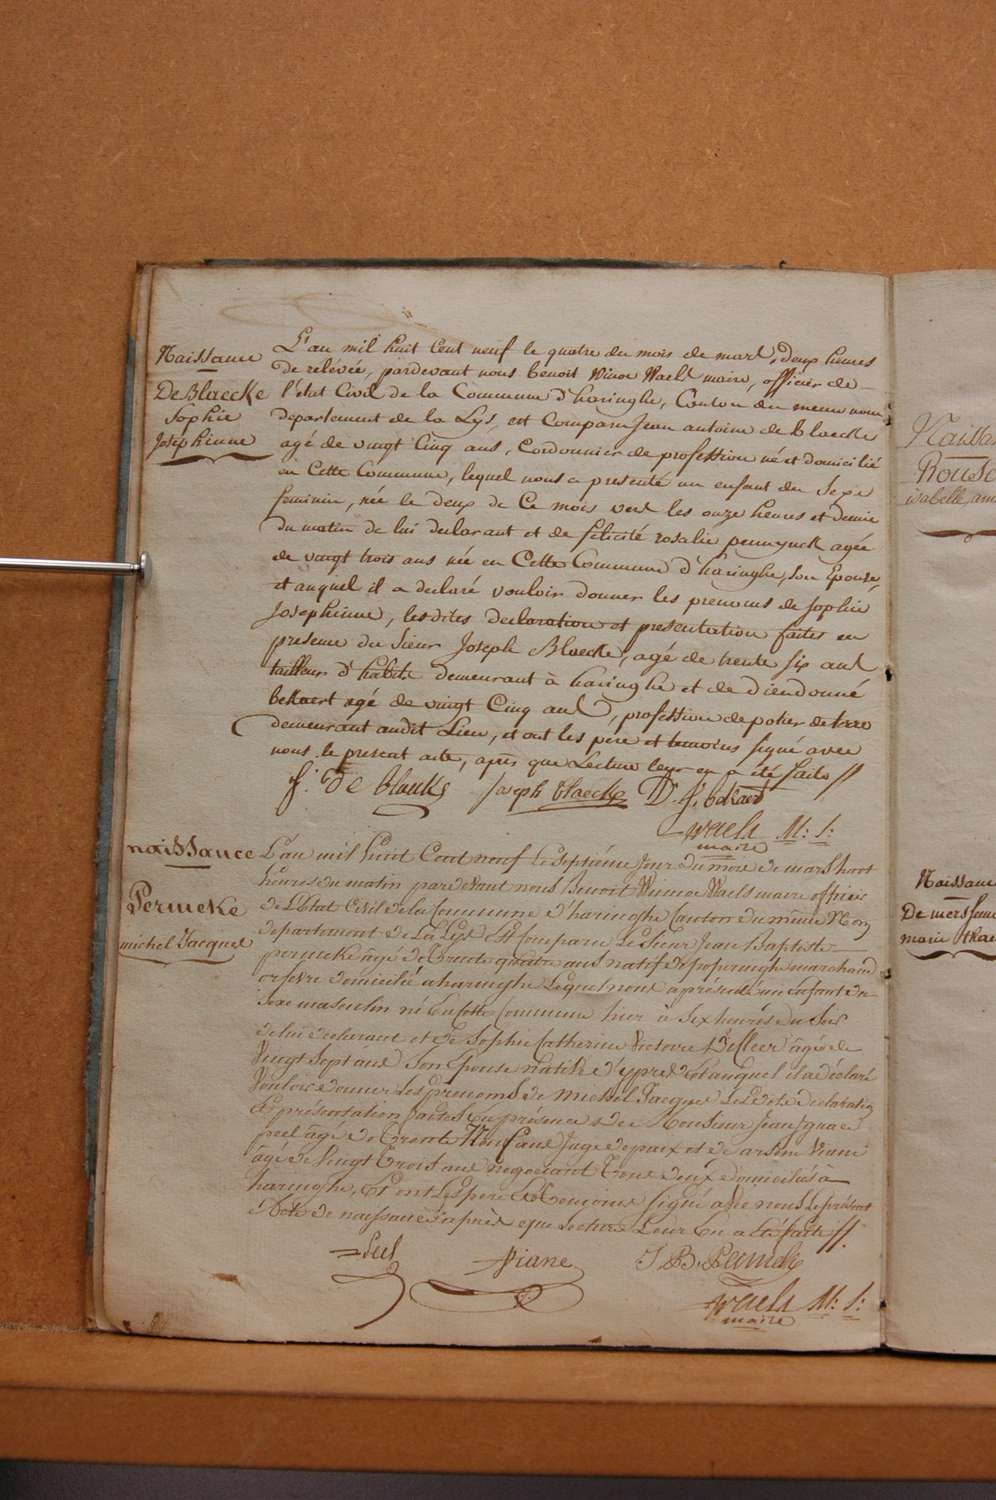 Naissance
DeBlaecke
Sophie
Josephinne
L'an mil huit Cent neuf le quatre du mois de mars, deux heures
de relévée, pardevant nous benoit Winoc Waels maire, officier de
l'état Civil de la Commune d'haringhe, Canton du meme nom
departement de la Lys, est Comparu Jean antoine de blaecke
agé de vingt Cinq ans, Cordonnier de profession né et domicilié
en Cette Commune, lequel nous a presenté un enfant du Sexe
feminin, née le deux de Ce mois vers les onze heures et demie
du matin de lui declarant et de felicité rosalie pennynck agée
de vingt trois ans née en Cette Commune d'haringhe, Son Epouse,
et auquel il a declaré vouloir donner les prenoms de Sophie
Josephinne, lesdites declaration et presentation faites en
presence du Sieur Joseph Blaecke, agé de trente six ans
tailleur d'habits demeurant à haringhe et de Diendonné
bekaert agé de vingt Cinq ans, profession de potier de terre
demeurant audit Lieu, et ont les pere et temoins signé avec
nous le present acte, après que Lecture leur en a été faite //
J: De blaecke Joseph blaecke D. J. bekaert
Waels M: S:
maire
naissance
Permeke
michel Jacques
L'an mil huit Cent neuf Le Septiéme Jour du mois de mars huit
heures du matin pardevant nous Benoit Winoc Waels maire officier
de L'Etat Civil de la Commune d'haringhe Canton du même Nom
departement de La Lys Est Comparu Le Sieur Jean Baptiste
permeke âgé de trente quatre ans natif de poperinghe marchand
orfevre domicilié a haringhe Lequel nous à présenté un Enfant du
Sexe masculin né En cette Commune hier à Six heures du Soir
de lui déclarant et de Sophie Catherine Victoire agée de
Vingt Sept ans Son Epouse native d'ypres Et auquel il a déclaré
Vouloir donner Les prenoms de Michel Jacques Lesdites déclaration
Et présentation faites En présence de Monsieur Jean
peel âgé de trente Neuf ans Juge de paix et de arsene Viane
agé de Vingt Trois ans negociant Tous deux domiciliés à
haringhe, Et ont Les pere Et Temoins Signé avec nous Le présent
Acte de naissance après que Lecture Leur En a été faite //.
Peel Viane J B. Permeke
Waels M: S:
maire
Naissance
De mersseman
marie